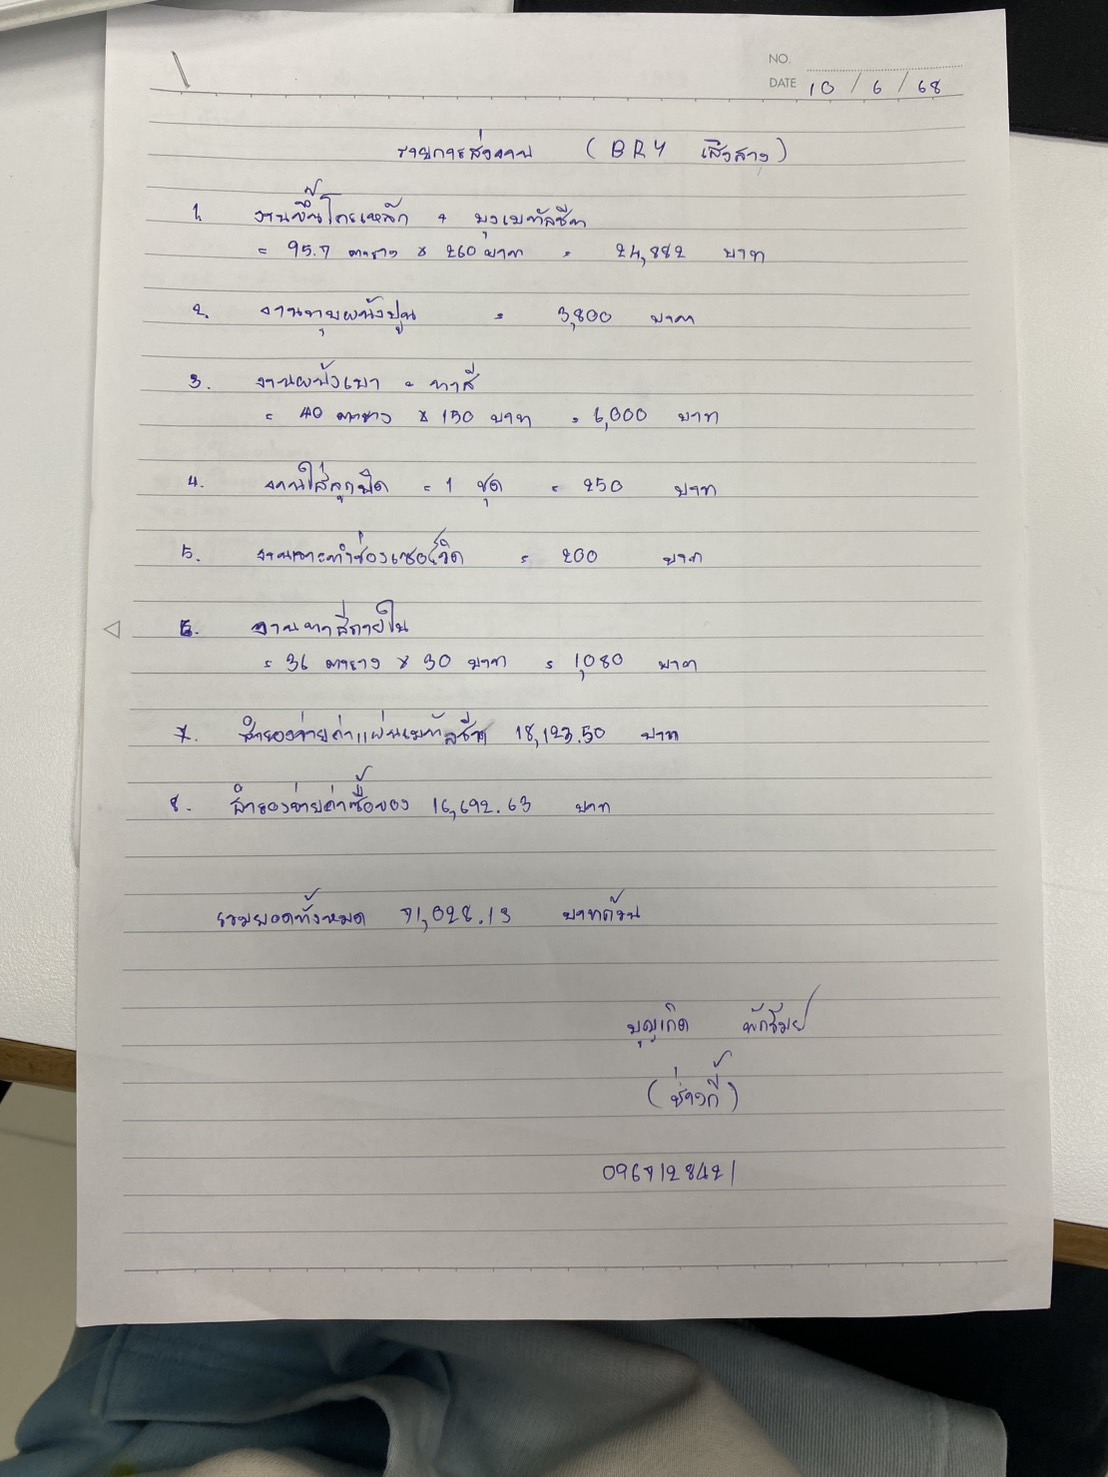 NO.
DATE 10 / 6 / 68
รายการส่งงาน (BRY เสิงสาง)
1. งานขึ้นโครงเหล็ก + มุงเมทัลชีท
= 95.7 ตาราง × 260 บาท = 24,882 บาท
2. งานทุบผนังปูน = 3,800 บาท
3. งานผนังเบา - ทาสี
= 40 ตาราง × 150 บาท = 6,000 บาท
4. งานใส่ลูกบิด = 1 ชุด = 250 บาท
5. งานเจาะทำช่องเซอร์วิด = 200 บาท
6. งานทาสีภายใน
= 36 ตาราง × 30 บาท = 1,080 บาท
7. สำรองจ่ายค่าแผ่นเมทัลชีท 18,123.50 บาท
8. สำรองจ่ายค่าซื้อของ 16,692.63 บาท
รวมยอดทั้งหมด 71,028.13 บาทถ้วน
บุญเกิด
(ช่างกี้)
0967128421